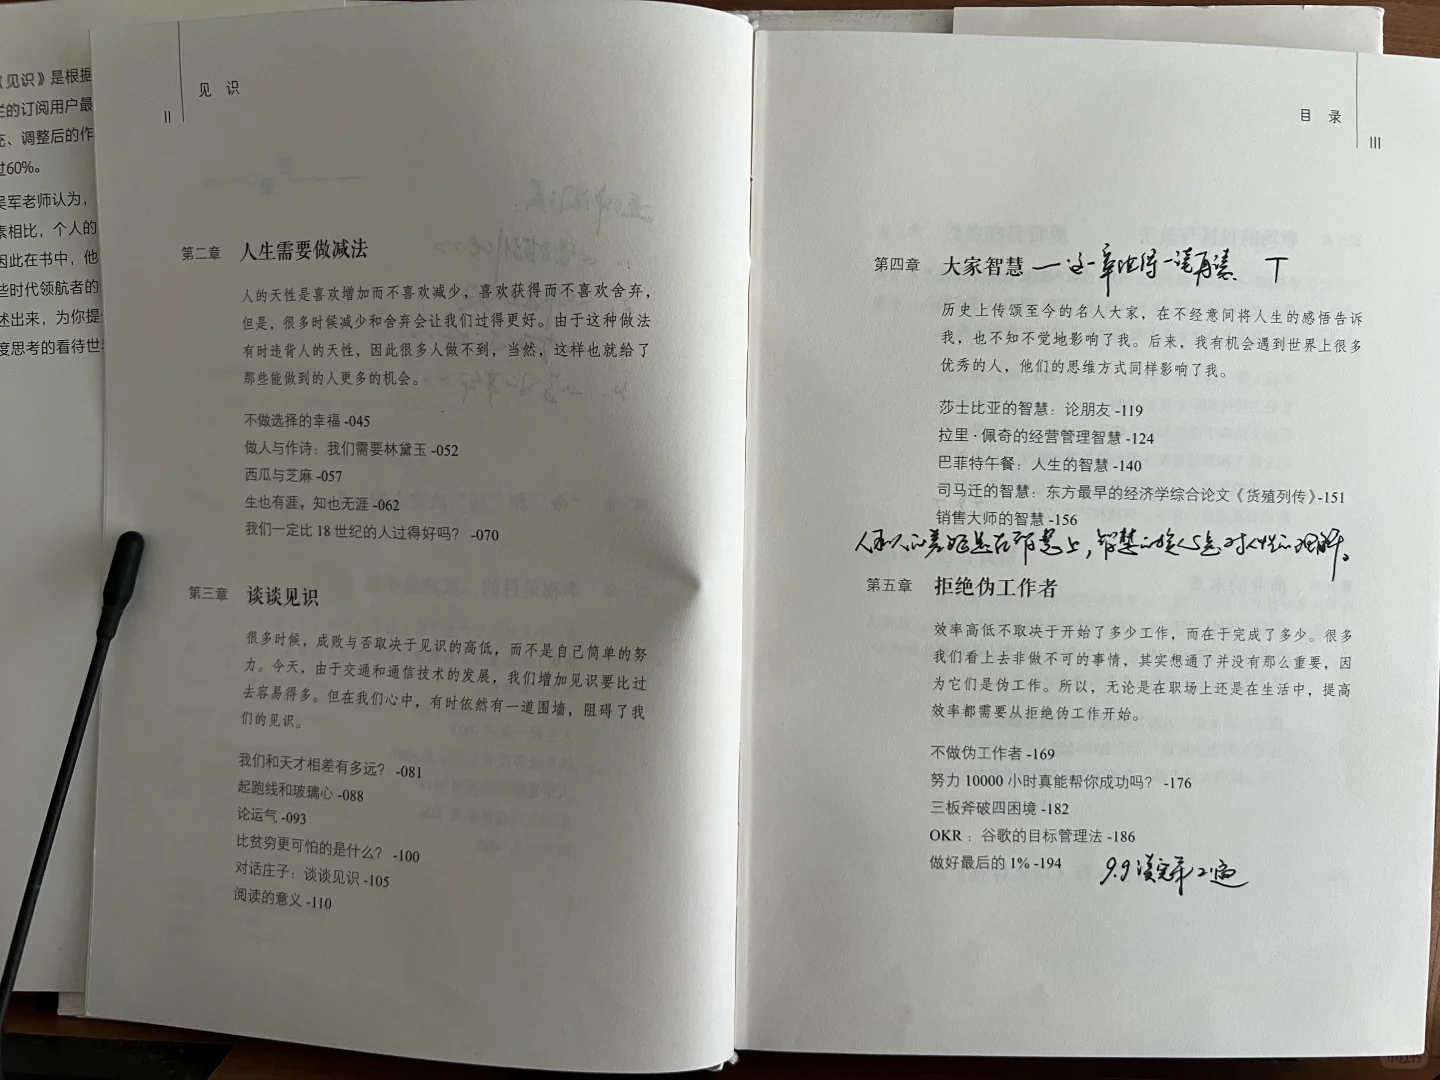 《见识》是根据
栏的订阅用户最
充、调整后的作
过60%。
吴军老师认为，
素相比，个人的
因此在书中，他
些时代领航者的
述出来，为你提
度思考的看待世
见 识
II
第二章 人生需要做减法
人的天性是喜欢增加而不喜欢减少，喜欢获得而不喜欢舍弃，
但是，很多时候减少和舍弃会让我们过得更好。由于这种做法
有时违背人的天性，因此很多人做不到，当然，这样也就给了
那些能做到的人更多的机会。
不做选择的幸福 -045
做人与作诗：我们需要林黛玉 -052
西瓜与芝麻 -057
生也有涯，知也无涯 -062
我们一定比 18 世纪的人过得好吗？ -070
第三章 谈谈见识
很多时候，成败与否取决于见识的高低，而不是自己简单的努
力。今天，由于交通和通信技术的发展，我们增加见识要比过
去容易得多。但在我们心中，有时依然有一道围墙，阻碍了我
们的见识。
我们和天才相差有多远？ -081
起跑线和玻璃心 -088
论运气 -093
比贫穷更可怕的是什么？ -100
对话庄子：谈谈见识 -105
阅读的意义 -110
目 录
III
第四章 大家智慧 — 这一章值得一读再读
历史上传颂至今的名人大家，在不经意间将人生的感悟告诉
我，也不知不觉地影响了我。后来，我有机会遇到世界上很多
优秀的人，他们的思维方式同样影响了我。
莎士比亚的智慧：论朋友 -119
拉里·佩奇的经营管理智慧 -124
巴菲特午餐：人生的智慧 -140
司马迁的智慧：东方最早的经济学综合论文《货殖列传》-151
销售大师的智慧 -156
人和人的差距是在智慧上，智慧的核心是对人性的理解。
第五章 拒绝伪工作者
效率高低不取决于开始了多少工作，而在于完成了多少。很多
我们看上去非做不可的事情，其实想通了并没有那么重要，因
为它们是伪工作。所以，无论是在职场上还是在生活中，提高
效率都需要从拒绝伪工作开始。
不做伪工作者 -169
努力 10000 小时真能帮你成功吗？ -176
三板斧破四困境 -182
OKR ：谷歌的目标管理法 -186
做好最后的 1% -194
9.9 读完第2遍